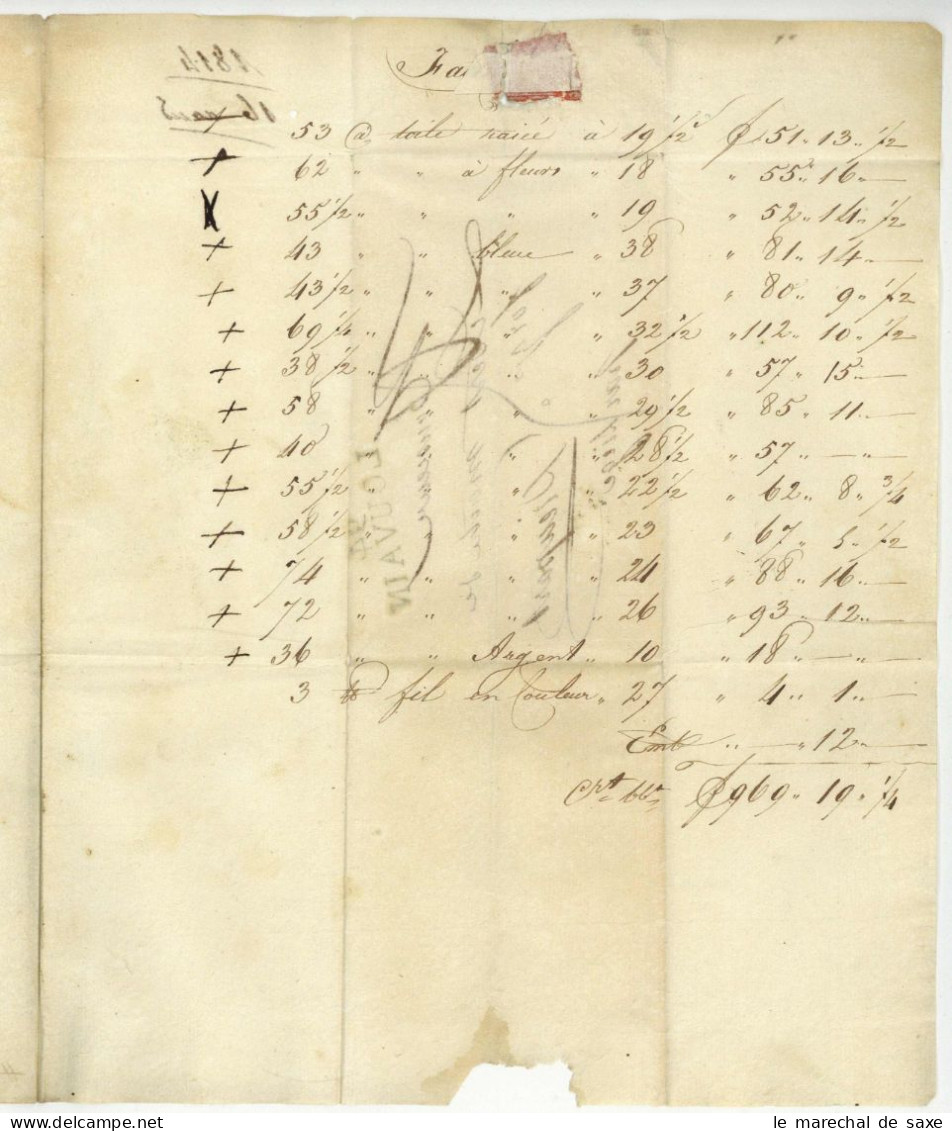 1814
16 mars
53 @ toile raiée à 19 1/2 ƒ 51 " 13 " 1/2
62 " " à fleurs " 18 " 55 " 16 " —
55 1/2 " " " " 19 " 52 " 14 " 1/2
43 " " bleue " 38 " 81 " 14 " —
43 1/2 " " " " 37 " 80 " 9 " 1/2
69 1/4 " " " " 32 1/2 " 112 " 10 " 1/2
38 1/2 " " " " 30 " 57 " 15 " —
58 " " " " 29 1/2 " 85 " 11 " —
40 " " " " 28 1/2 " 57 " — " —
55 1/2 " " " " 22 1/2 " 62 " 8 " 3/4
58 1/2 " " " " 23 " 67 " 5 " 1/2
74 " " " " 24 " 88 " 16 " —
72 " " " " 26 " 93 " 12 " —
36 " " Argent " 10 " 18 " — " —
3 ℔ fil en Couleur " 27 " 4 " 1 " —
Emb " — " 12 " —
ƒ 969 " 19 " 1/4
le marechal de saxe